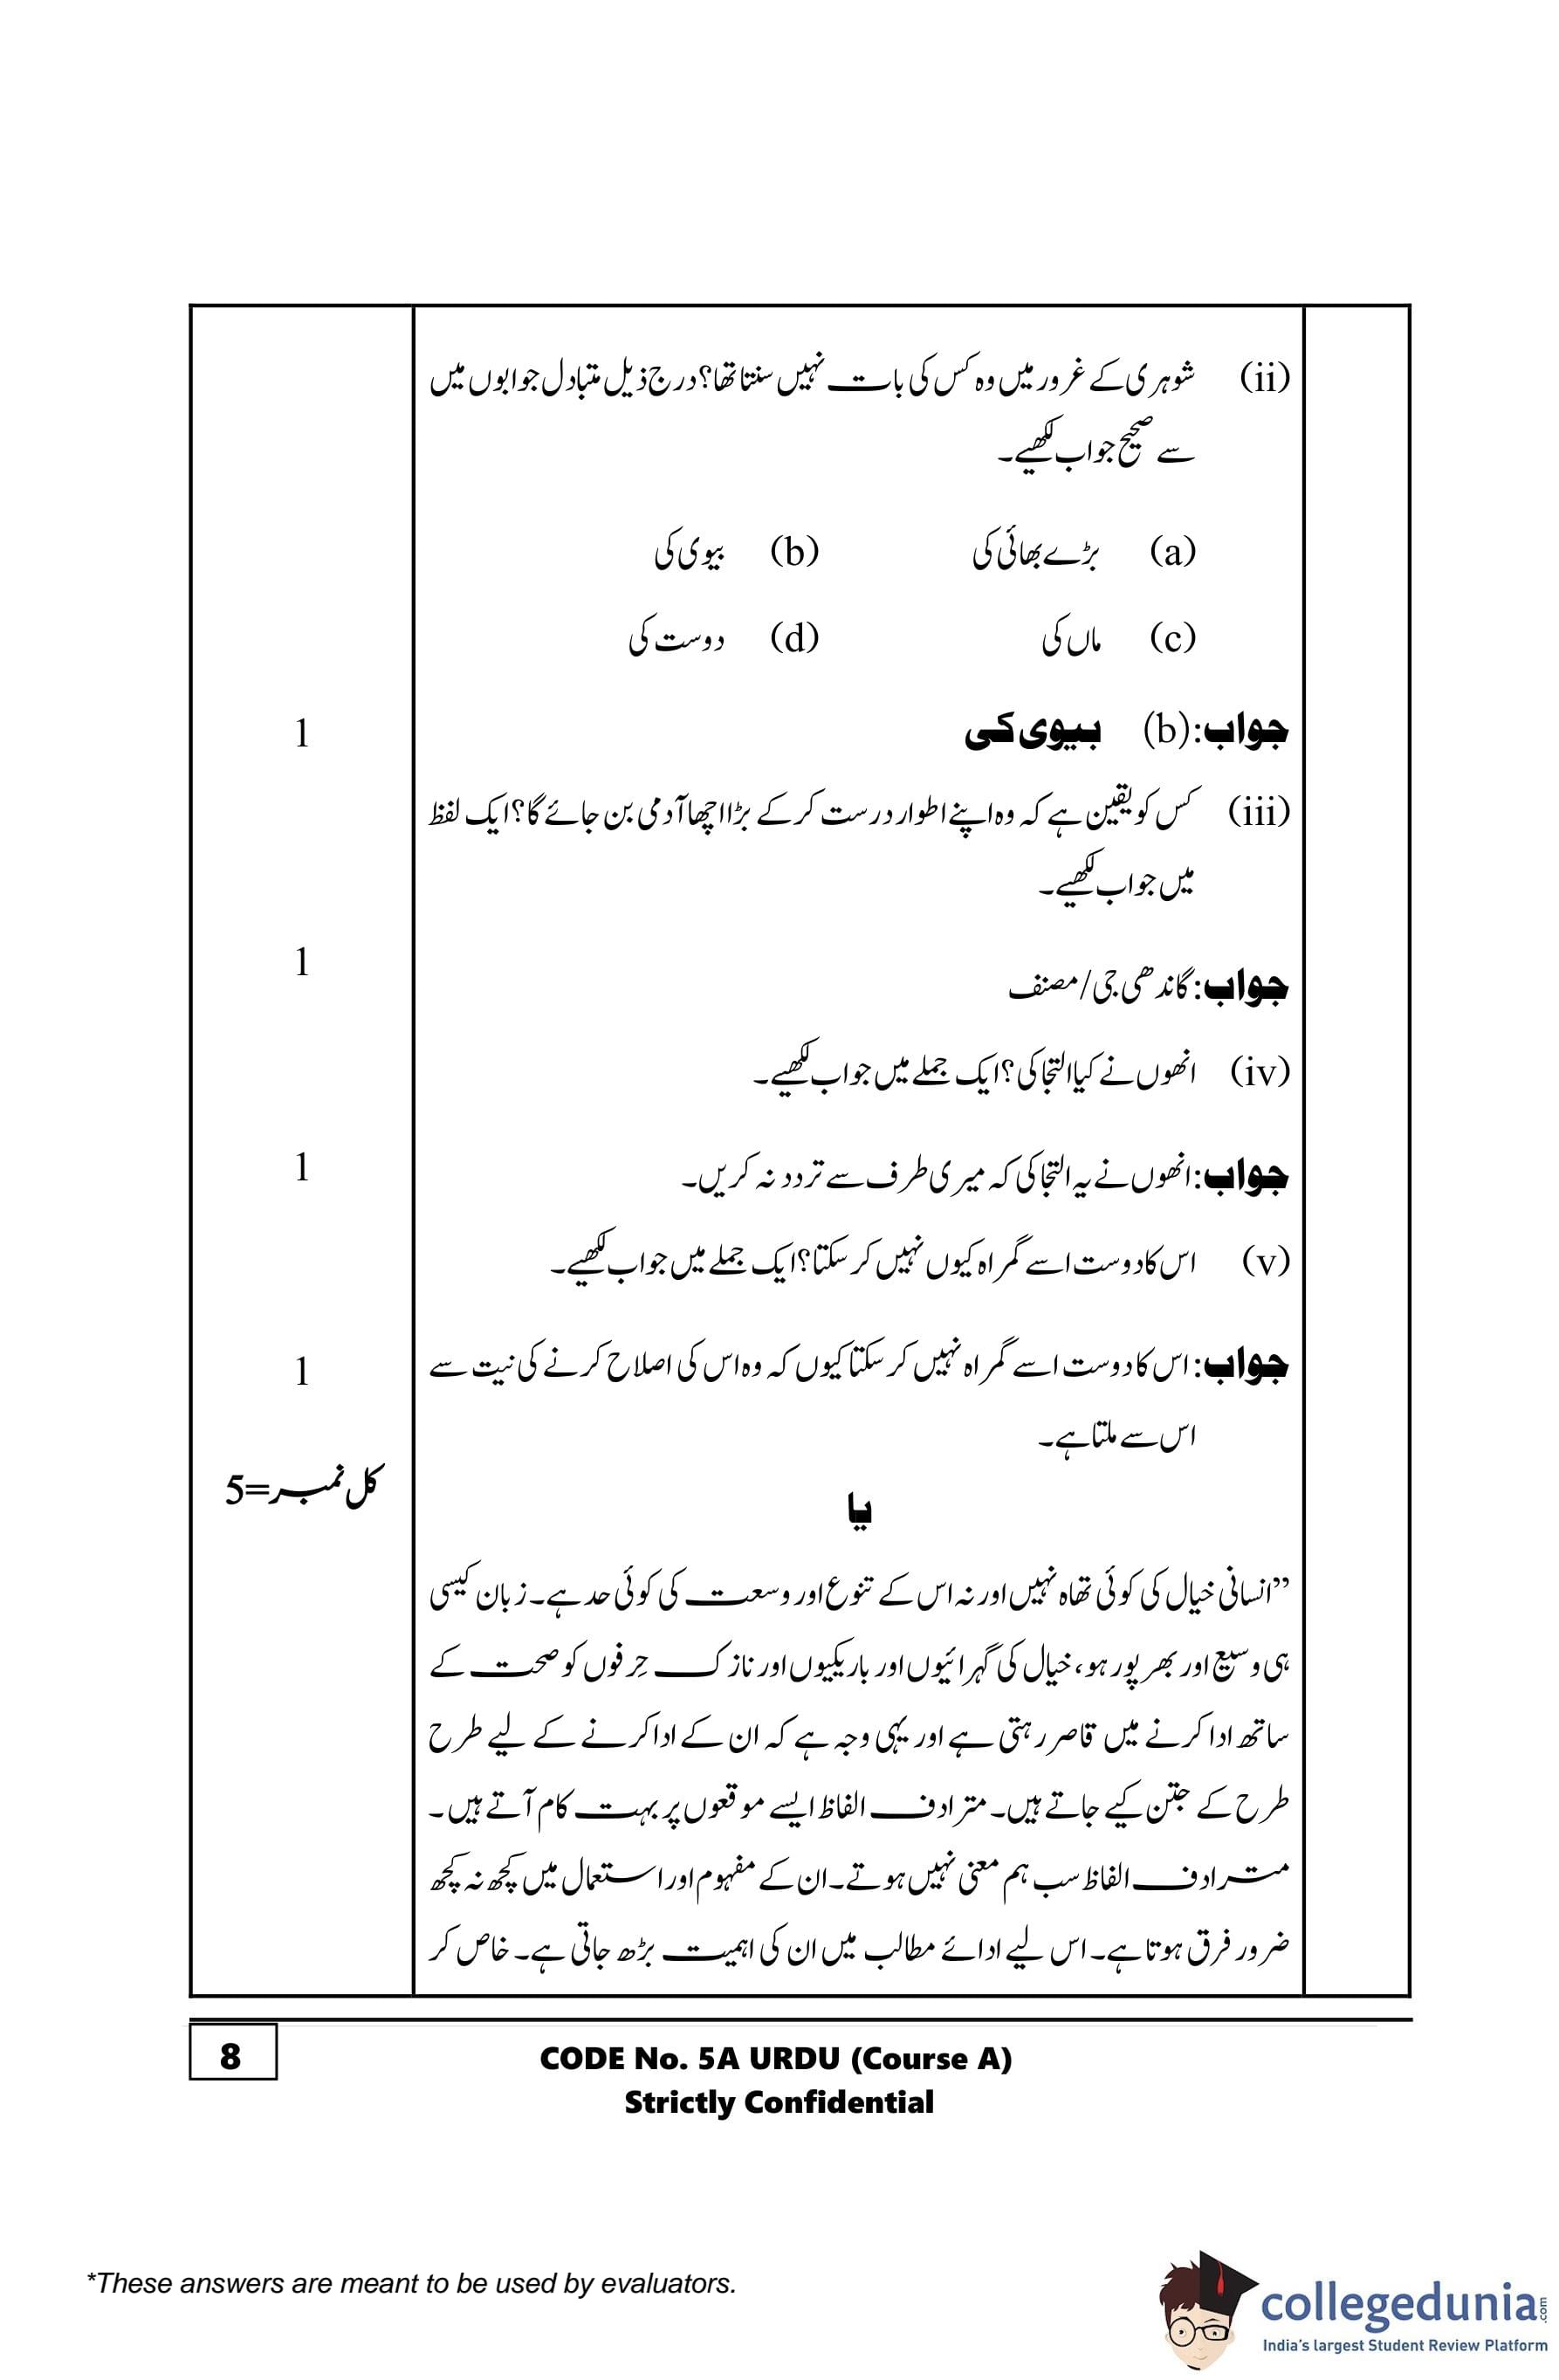 (ii) شوہری کے غرور میں وہ کس کی بات نہیں سنتا تھا؟ درج ذیل متبادل جوابوں میں
سے صحیح جواب لکھیے۔
(a) بڑے بھائی کی (b) بیوی کی
(c) ماں کی (d) دوست کی
جواب: (b) بیوی کی
1
(iii) کس کو یقین ہے کہ وہ اپنے اطوار درست کر کے بڑا اچھا آدمی بن جائے گا؟ ایک لفظ
میں جواب لکھیے۔
جواب: گاندھی جی/مصنف
1
(iv) انھوں نے کیا التجا کی؟ ایک جملے میں جواب لکھیے۔
جواب: انھوں نے یہ التجا کی کہ میری طرف سے تردد نہ کریں۔
1
(v) اس کا دوست اسے گمراہ کیوں نہیں کر سکتا؟ ایک جملے میں جواب لکھیے۔
جواب: اس کا دوست اسے گمراہ نہیں کر سکتا کیوں کہ وہ اس کی اصلاح کرنے کی نیت سے
1
اس سے ملتا ہے۔
کل نمبر=5
یا
”انسانی خیال کی کوئی تھاہ نہیں اور نہ اس کے تنوع اور وسعت کی کوئی حد ہے۔ زبان کیسی
ہی وسیع اور بھرپور ہو، خیال کی گہرائیوں اور باریکیوں اور نازک حِرفوں کو صحت کے
ساتھ ادا کرنے میں قاصر رہتی ہے اور یہی وجہ ہے کہ ان کے ادا کرنے کے لیے طرح
طرح کے جتن کیے جاتے ہیں۔ مترادف الفاظ ایسے موقعوں پر بہت کام آتے ہیں۔
مترادف الفاظ سب ہم معنی نہیں ہوتے۔ ان کے مفہوم اور استعمال میں کچھ نہ کچھ
ضرور فرق ہوتا ہے۔ اس لیے ادائے مطالب میں ان کی اہمیت بڑھ جاتی ہے۔ خاص کر
8
CODE No. 5A URDU (Course A)
Strictly Confidential
*These answers are meant to be used by evaluators.
collegedunia.com
India's largest Student Review Platform